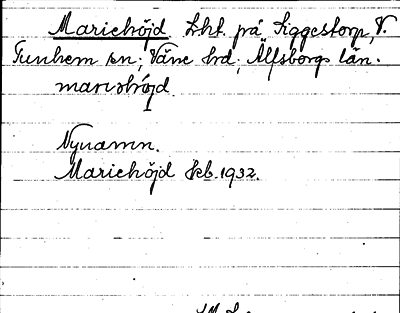 Mariehöjd Lht. på Siggestorp, V.
Tunhem sn; Väne hd, Älfsborgs län.
Nynamn.
Mariehöjd Jkb. 1932.